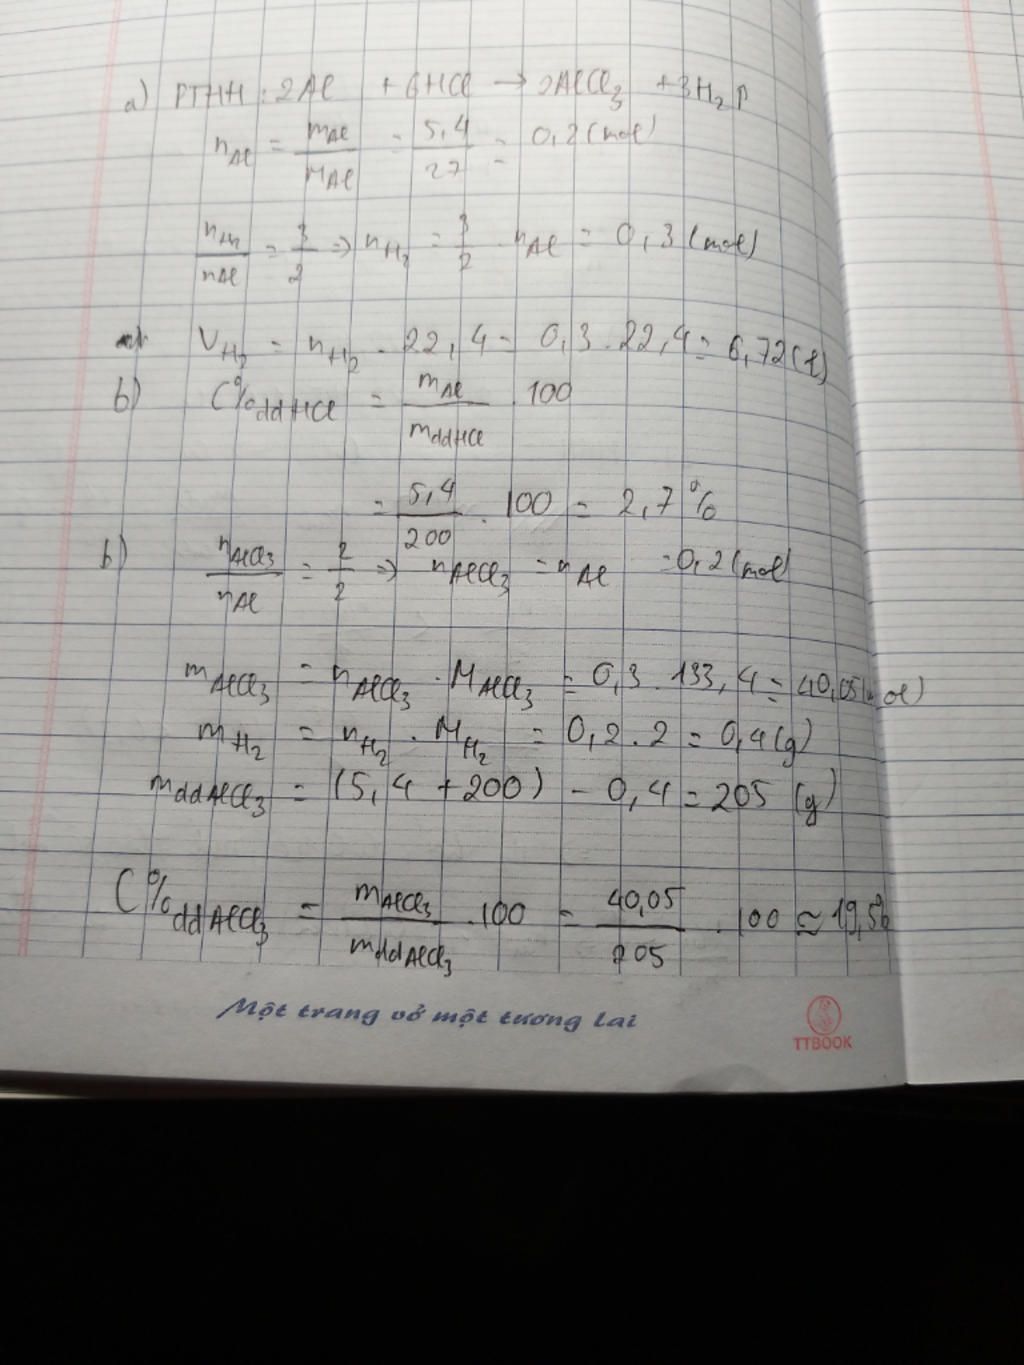 a) PTHH: 2Al + 6HCl → 2AlCl₃ + 3H₂↑
n_Al = m_Al / M_Al = 5,4 / 27 = 0,2 (mol)
n_H₂ / n_Al = 3/2 ⇒ n_H₂ = 3/2 . n_Al = 0,3 (mol)
V_H₂ = n_H₂ . 22,4 = 0,3 . 22,4 = 6,72 (l)
b) C%ddHCl = m_Al / mddHCl . 100
= 5,4 / 200 . 100 = 2,7 %
b) n_AlCl₃ / n_Al = 2/2 ⇒ n_AlCl₃ = n_Al = 0,2 (mol)
m_AlCl₃ = n_AlCl₃ . M_AlCl₃ = 0,3 . 133,4 = 40,05 (mol)
m_H₂ = n_H₂ . M_H₂ = 0,2 . 2 = 0,4 (g)
mddAlCl₃ = (5,4 + 200) - 0,4 = 205 (g)
C%ddAlCl₃ = m_AlCl₃ / mddAlCl₃ . 100 = 40,05 / 205 . 100 ≈ 19,5%
Một trang vở một tương lai
TTBOOK